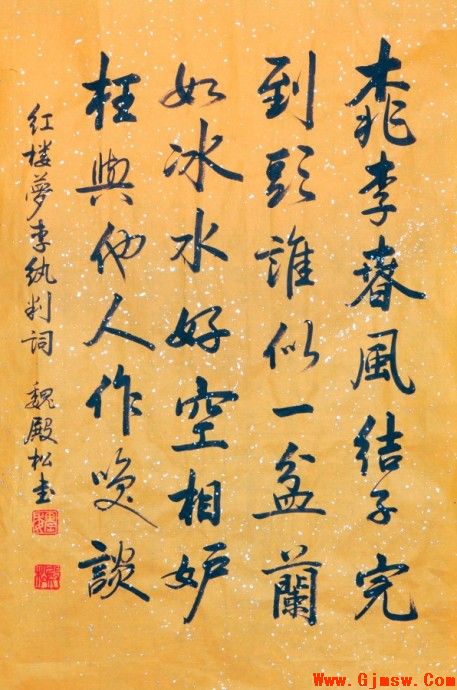 桃李春風結子完
到頭誰似一盆蘭
如冰水好空相妒
枉與他人作咲談
红楼夢李纨判词 魏殿松书
Www.Gjmsw.Com